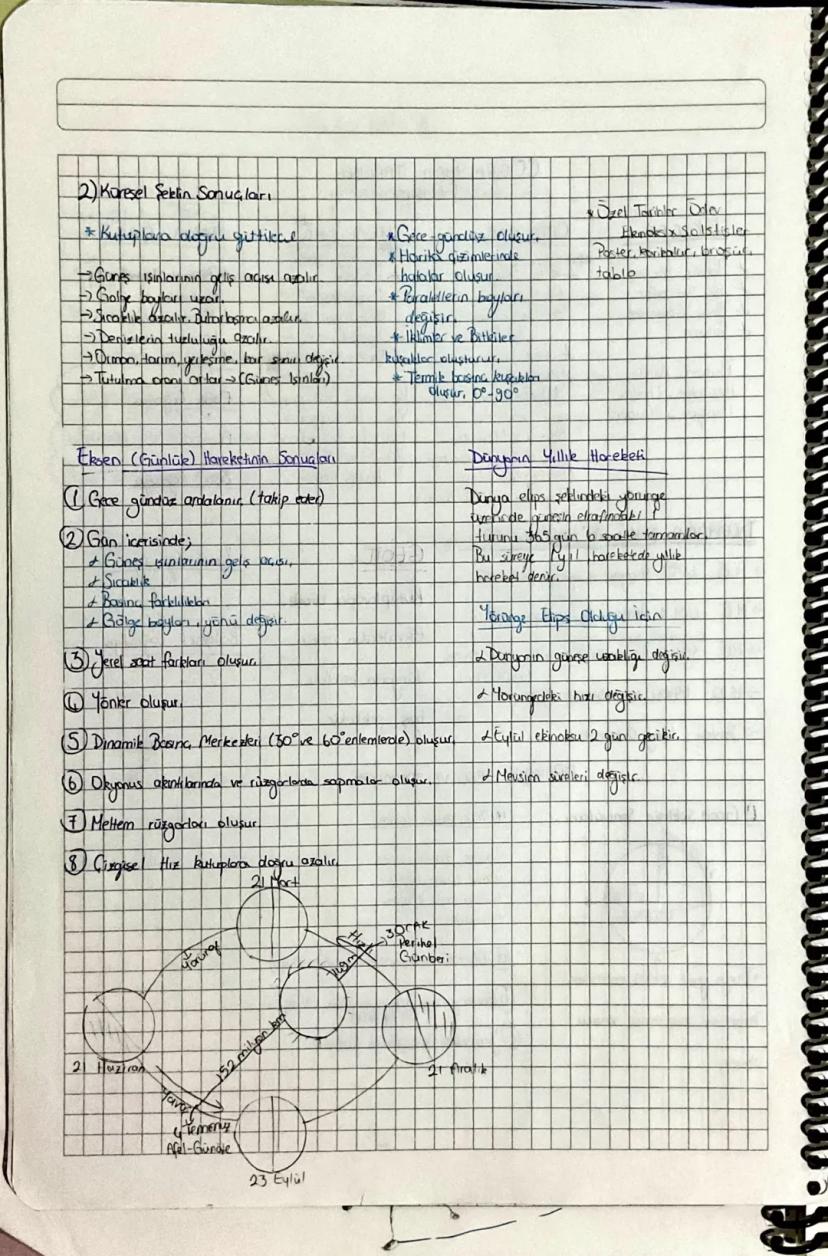 2) Küresel Şeklin Sonuçları
* Kutuplara doğru gittikçe
→ Güneş ışınlarının geliş açısı azalır.
→ Gölge boyları uzar.
→ Sıcaklık azalır. Buharlaşma azalır.
→ Denizlerin tuzluluğu azalır.
→ Orman, tarım, yerleşme, kar sınırı değişir.
→ Tutulma oranı artar → (Güneş Işınları)
* Gece-gündüz oluşur.
* Harita çizimlerinde
hatalar oluşur.
* Paralellerin boyları
değişir.
* İklimler ve Bitkiler
kuşaklar oluşturur.
* Termik basınç kuşakları
oluşur. 0°-90°
* Özel Tarihler Ödev
Ekinoks x Solstisler
Poster, karikatür, broşür,
tablo
Eksen (Günlük) Hareketinin Sonuçları
1 Gece gündüz ardalanır. (takip eder)
2 Gün içerisinde;
Güneş ışınlarının geliş açısı,
Sıcaklık
Basınç farklılıkları
Gölge boyları, yönü değişir.
3 Yerel saat farkları oluşur.
4 Yönler oluşur.
5 Dinamik Basınç Merkezleri (30° ve 60° enlemlerde) oluşur.
6 Okyanus akıntılarında ve rüzgarlarda sapmalar oluşur.
7 Meltem rüzgarları oluşur.
8 Çizgisel Hız kutuplara doğru azalır.
Dünyanın Yıllık Hareketi
Dünya elips şeklindeki yörünge
üzerinde güneşin etrafındaki
turunu 365 gün 6 saatte tamamlar.
Bu süreye 1 yıl harekete de yıllık
hareket denir.
Yörünge Elips Olduğu için
Dünyanın güneşe uzaklığı değişir.
Yörüngedeki hızı değişir.
Eylül ekinoksu 2 gün gecikir.
Mevsim süreleri değişir.
21 Mart
Yörünge
Hızlı
3 OCAK
Perihel
Günberi
21 Haziran
152 milyon km
21 Aralık
Yavaş
4 Temmuz
Afel-Günöte
23 Eylül